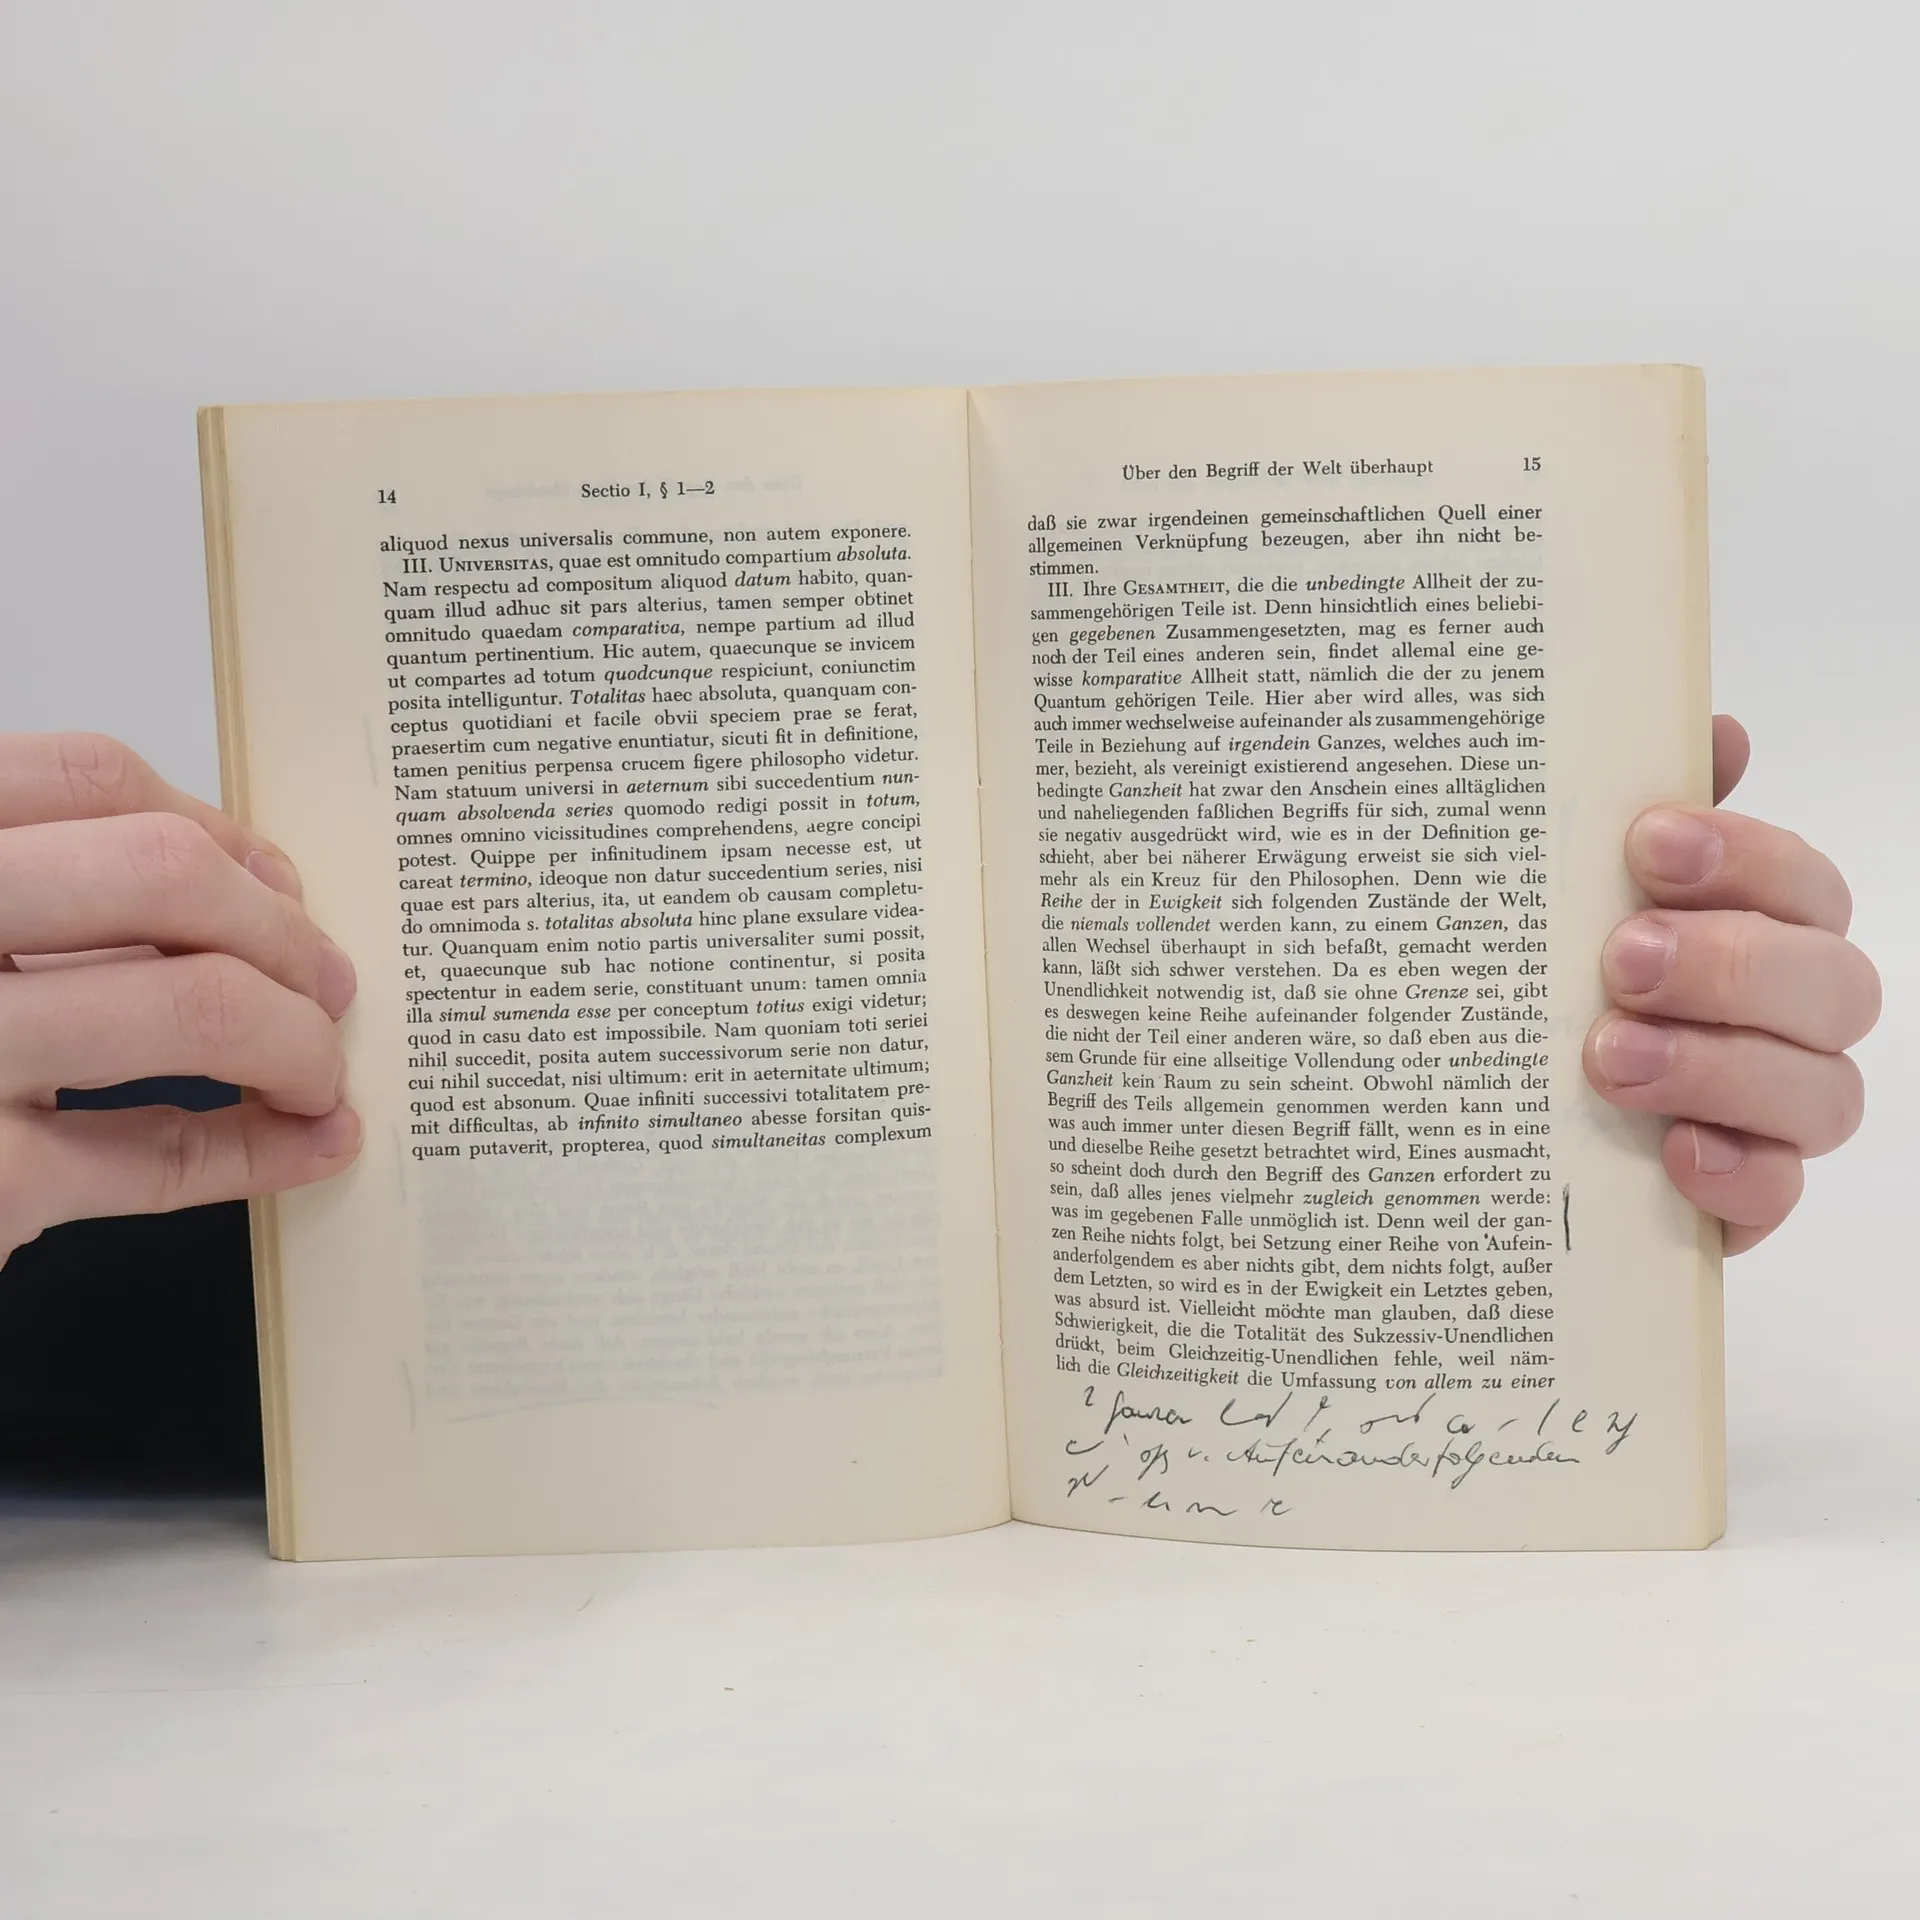 14
Sectio I, § 1—2
aliquod nexus universalis commune, non autem exponere.
III. UNIVERSITAS, quae est omnitudo compartium absoluta.
Nam respectu ad compositum aliquod datum habito, quan-
quam illud adhuc sit pars alterius, tamen semper obtinet
omnitudo quaedam comparativa, nempe partium ad illud
quantum pertinentium. Hic autem, quaecunque se invicem
ut compartes ad totum quodcunque respiciunt, coniunctim
posita intelliguntur. Totalitas haec absoluta, quanquam con-
ceptus quotidiani et facile obvii speciem prae se ferat,
praesertim cum negative enuntiatur, sicuti fit in definitione,
tamen penitius perpensa crucem figere philosopho videtur.
Nam statuum universi in aeternum sibi succedentium nun-
quam absolvenda series quomodo redigi possit in totum,
omnes omnino vicissitudines comprehendens, aegre concipi
potest. Quippe per infinitudinem ipsam necesse est, ut
careat termino, ideoque non datur succedentium series, nisi
quae est pars alterius, ita, ut eandem ob causam completu-
do omnimoda s. totalitas absoluta hinc plane exsulare videa-
tur. Quanquam enim notio partis universaliter sumi possit,
et, quaecunque sub hac notione continentur, si posita
spectentur in eadem serie, constituant unum: tamen omnia
illa simul sumenda esse per conceptum totius exigi videtur;
quod in casu dato est impossibile. Nam quoniam toti seriei
nihil succedit, posita autem successivorum serie non datur,
cui nihil succedat, nisi ultimum: erit in aeternitate ultimum;
quod est absonum. Quae infiniti successivi totalitatem pre-
mit difficultas, ab infinito simultaneo abesse forsitan quis-
quam putaverit, propterea, quod simultaneitas complexum
Über den Begriff der Welt überhaupt
15
daß sie zwar irgendeinen gemeinschaftlichen Quell einer
allgemeinen Verknüpfung bezeugen, aber ihn nicht be-
stimmen.
III. Ihre GESAMTHEIT, die die unbedingte Allheit der zu-
sammengehörigen Teile ist. Denn hinsichtlich eines beliebi-
gen gegebenen Zusammengesetzten, mag es ferner auch
noch der Teil eines anderen sein, findet allemal eine ge-
wisse komparative Allheit statt, nämlich die der zu jenem
Quantum gehörigen Teile. Hier aber wird alles, was sich
auch immer wechselweise aufeinander als zusammengehörige
Teile in Beziehung auf irgendein Ganzes, welches auch im-
mer, bezieht, als vereinigt existierend angesehen. Diese un-
bedingte Ganzheit hat zwar den Anschein eines alltäglichen
und naheliegenden faßlichen Begriffs für sich, zumal wenn
sie negativ ausgedrückt wird, wie es in der Definition ge-
schieht, aber bei näherer Erwägung erweist sie sich viel-
mehr als ein Kreuz für den Philosophen. Denn wie die
Reihe der in Ewigkeit sich folgenden Zustände der Welt,
die niemals vollendet werden kann, zu einem Ganzen, das
allen Wechsel überhaupt in sich befaßt, gemacht werden
kann, läßt sich schwer verstehen. Da es eben wegen der
Unendlichkeit notwendig ist, daß sie ohne Grenze sei, gibt
es deswegen keine Reihe aufeinander folgender Zustände,
die nicht der Teil einer anderen wäre, so daß eben aus die-
sem Grunde für eine allseitige Vollendung oder unbedingte
Ganzheit kein Raum zu sein scheint. Obwohl nämlich der
Begriff des Teils allgemein genommen werden kann und
was auch immer unter diesen Begriff fällt, wenn es in eine
und dieselbe Reihe gesetzt betrachtet wird, Eines ausmacht,
so scheint doch durch den Begriff des Ganzen erfordert zu
sein, daß alles jenes vielmehr zugleich genommen werde:
was im gegebenen Falle unmöglich ist. Denn weil der gan-
zen Reihe nichts folgt, bei Setzung einer Reihe von Aufein-
anderfolgendem es aber nichts gibt, dem nichts folgt, außer
dem Letzten, so wird es in der Ewigkeit ein Letztes geben,
was absurd ist. Vielleicht möchte man glauben, daß diese
Schwierigkeit, die die Totalität des Sukzessiv-Unendlichen
drückt, beim Gleichzeitig-Unendlichen fehle, weil näm-
lich die Gleichzeitigkeit die Umfassung von allem zu einer
v. Aufeinanderfolgenden